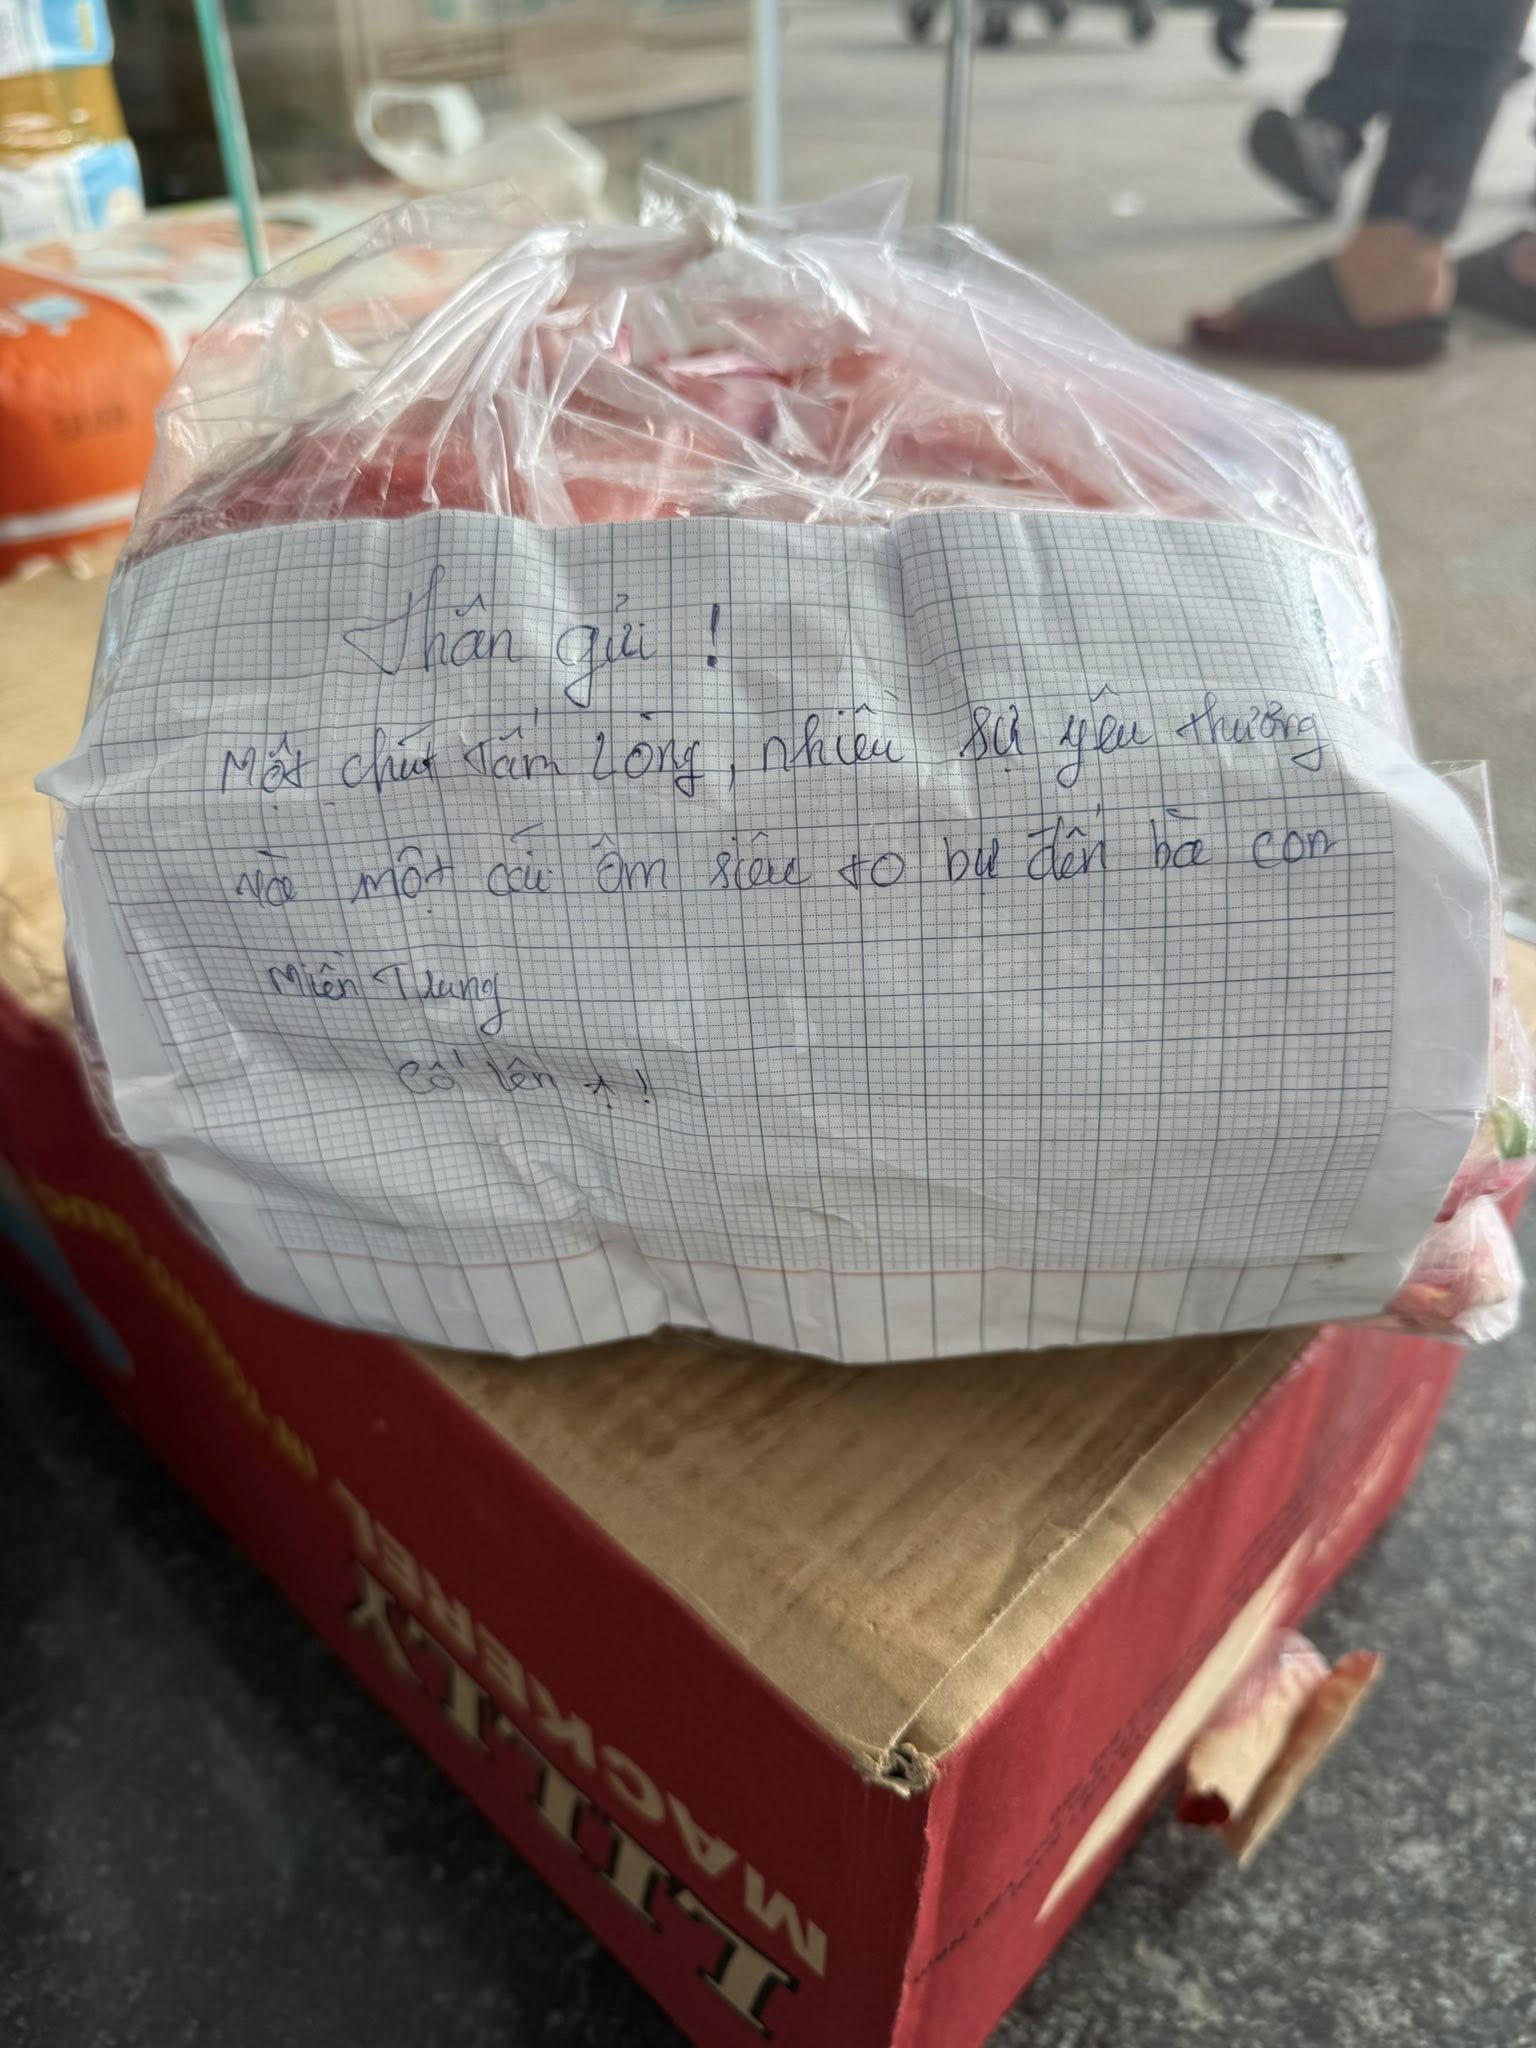 Thân gửi !
Một chút tấm lòng, nhiều sự yêu thương
và một cái ôm siêu to bự đến bà con
Miền Trung
Cố lên ^ !
LILLY
MACKEREL